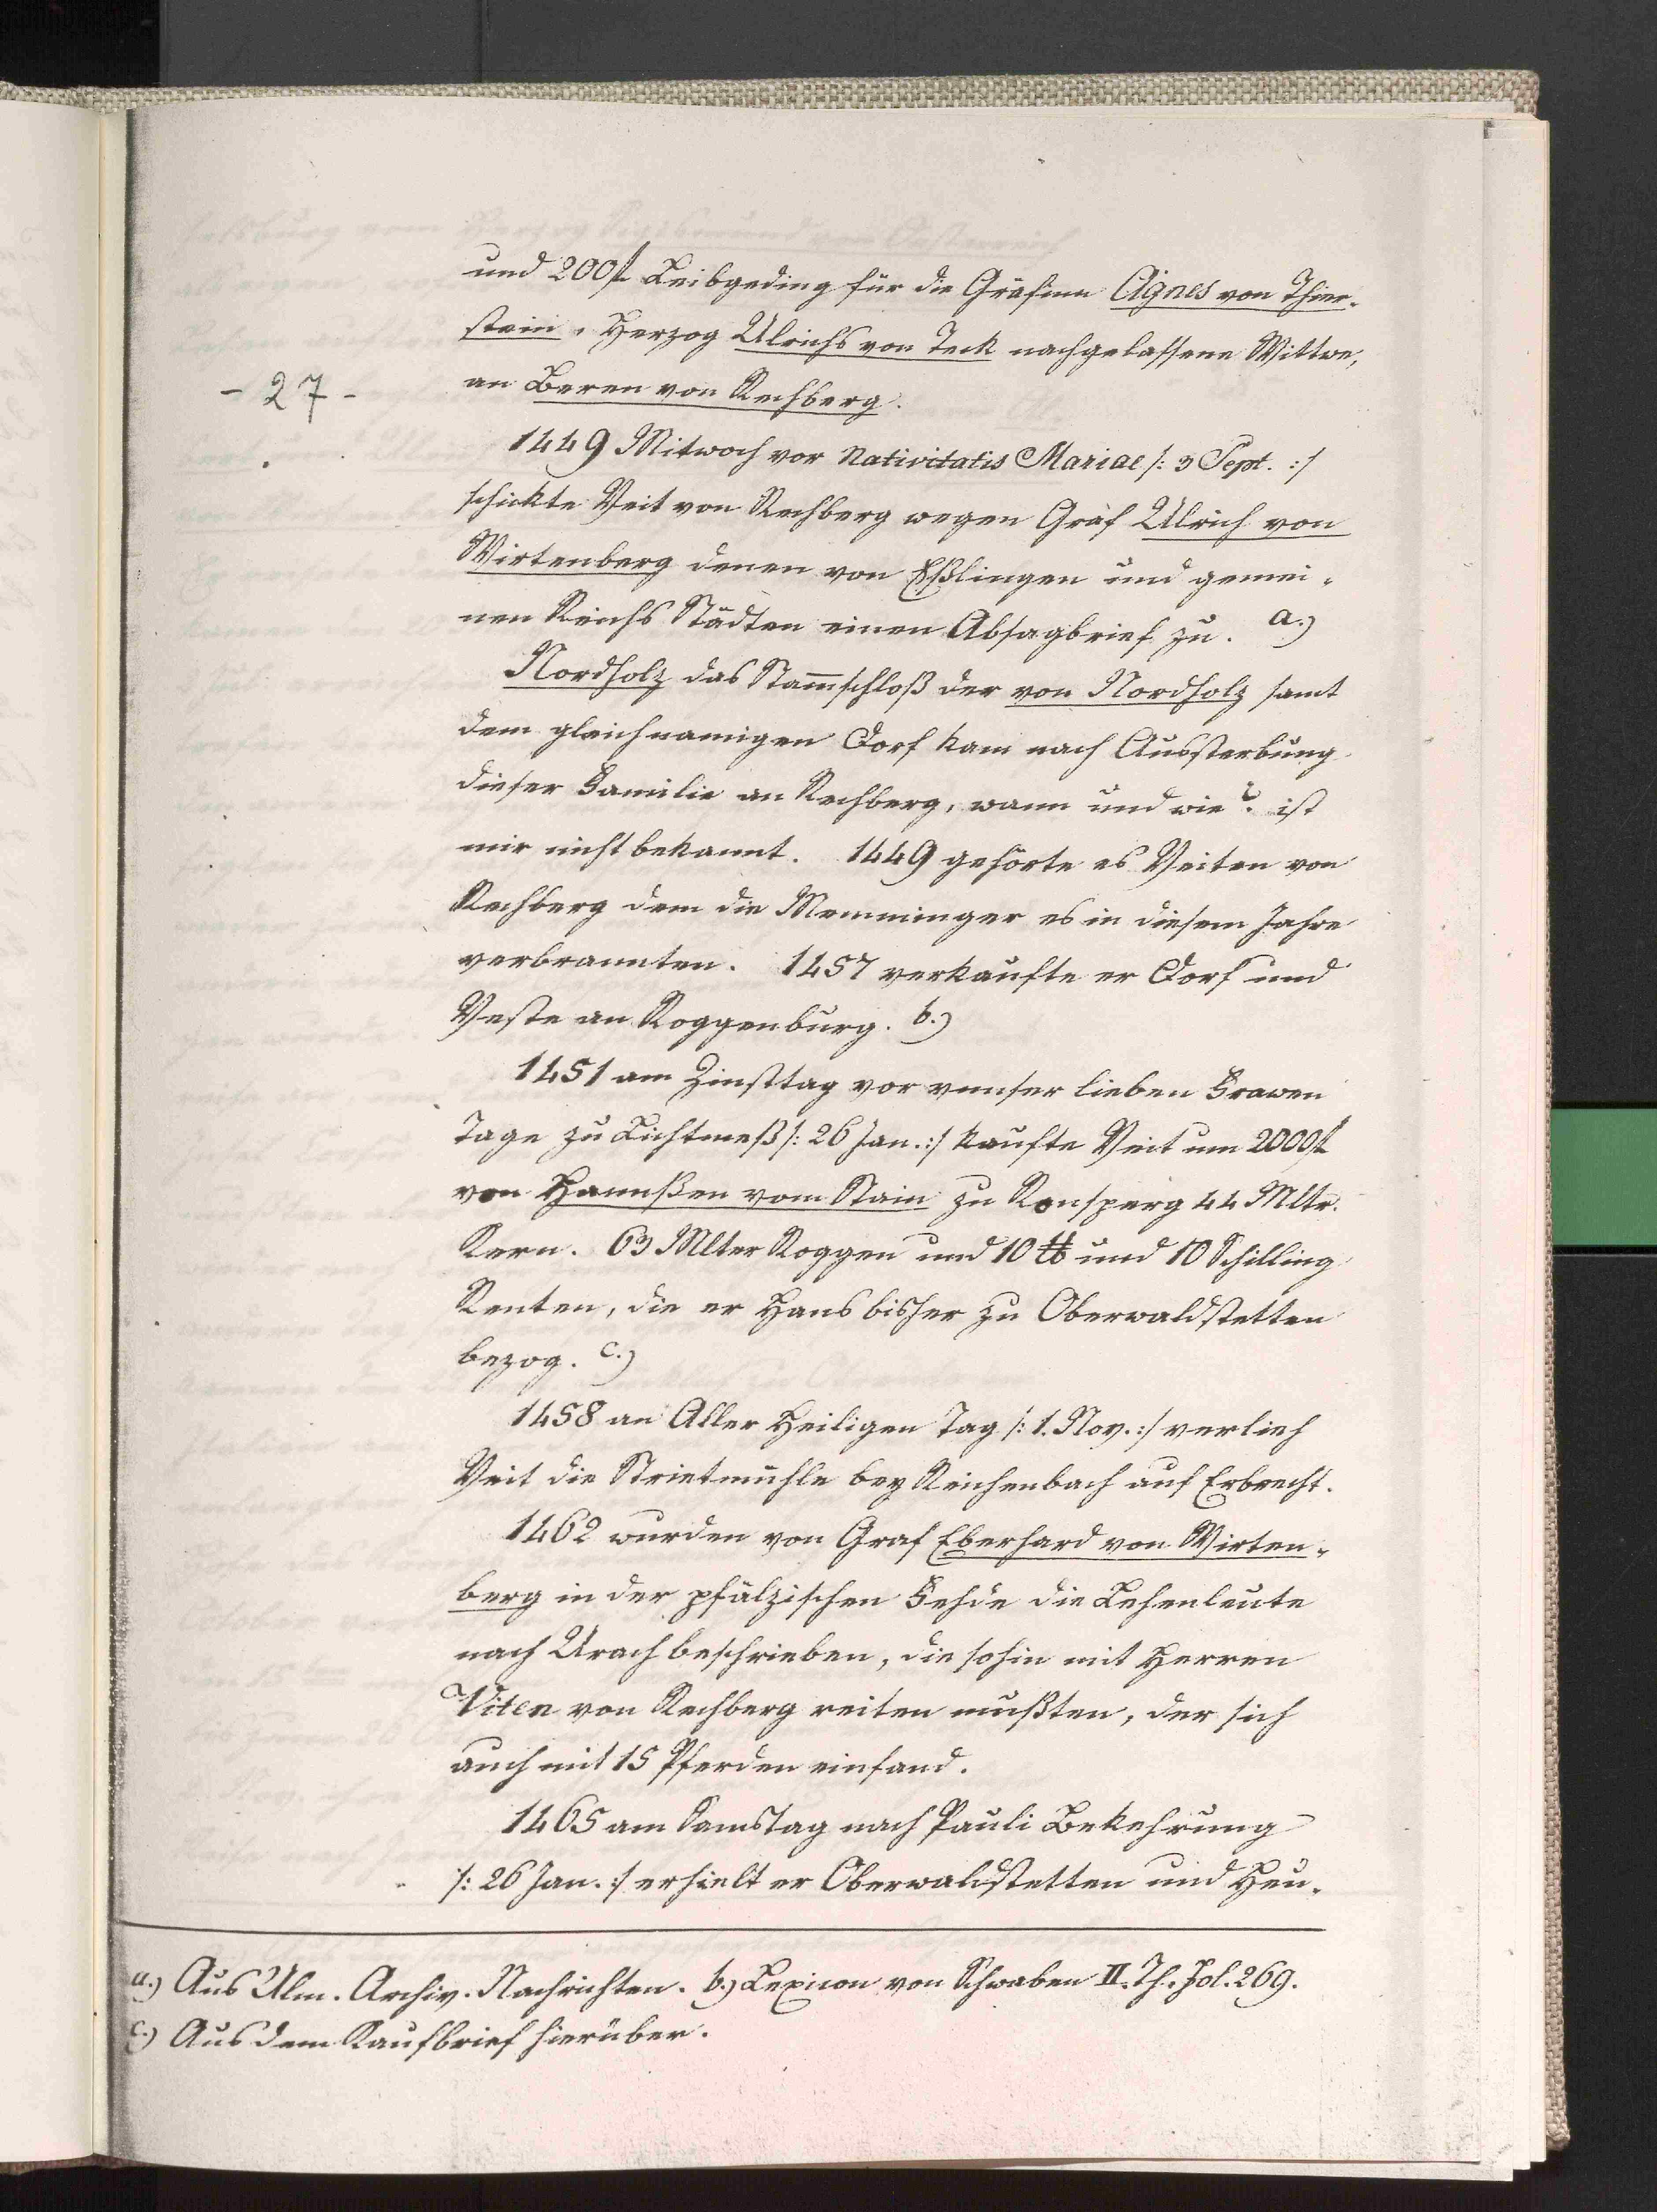 und 200 fl Leibgeding für die Gräfinn Agnes von Thier-
stein, Herzog Ulrichs von Teck nachgelassene Wittwe,
- 27 -
an Beren von Rechberg.
1449 Mitwoch vor Nativitatis Mariae /: 3 Sept. :/
schickte Veit von Rechberg wegen Graf Ulrich von
Wirtenberg denen von Eßlingen und gemei-
nen Reichs Städten einen Absagbrief zu. a.)
Nordholz das Stam̄schloß der von Nordholz samt
dem gleichnamigen Dorf kam nach Aussterbung
dieser Familie an Rechberg, wann und wie? ist
mir nicht bekannt. 1449 gehörte es Veiten von
Rechberg dem die Memminger es in diesem Jahre
verbrannten. 1457 verkaufte er Dorf und
Veste an Roggenburg. b.)
1451 am Zinsttag vor vnnser lieben Frawen
Tage zu Lichtmeß /: 26 Jan. :/ kaufte Veit um 2000 fl
von Hannßen vom Stain zu Ronsperg 44 Mltr.
Kern. 63 Mlter Roggen und 10 ℔ und 10 Schilling
Renten, die er Hans bisher zu Oberwaldstetten
bezog. c.)
1458 an Aller Heiligen Tag /: 1. Nov. :/ verlieh
Veit die Strietmühle bey Reichenbach auf Erbrecht.
1462 wurden von Graf Eberhard von Wirten-
berg in der pfälzischen Fehde die Lehenleute
nach Urach beschrieben, die sohin mit Herren
Viten von Rechberg reiten mußten, der sich
auch mit 15 Pferden einfand.
1465 am Samstag nach Pauli Bekehrung
/: 26 Jan. :/ erhielt er Oberwaldstetten und Heu-
a.) Aus Ulm. Archiv. Nachrichten. b.) Lexicon von Schwaben II. Th. Fol. 269.
c.) Aus dem Kaufbrief hierüber.